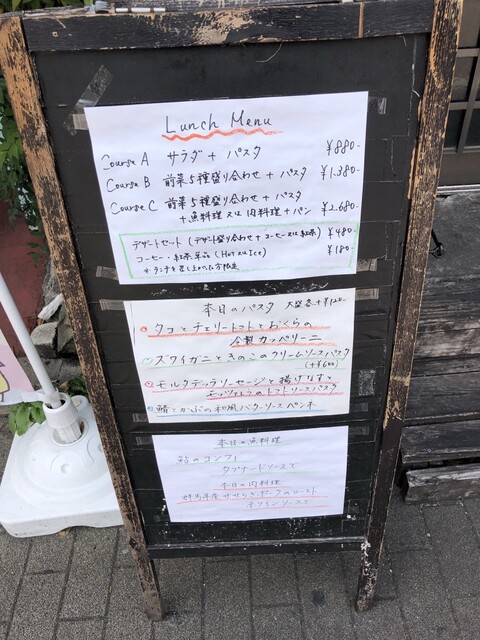 Lunch Menu
Course A サラダ + パスタ ¥880-
Course B 前菜5種盛り合わせ + パスタ ¥1,380-
Course C 前菜5種盛り合わせ + パスタ
+ 魚料理 又は 肉料理 + パン ¥2,680-
デザートセット (デザート盛り合わせ + コーヒー又は紅茶) ¥480-
コーヒー・紅茶 単品 (Hot or Ice) ¥180-
※ランチを召し上がった方限定
本日のパスタ 大盛
タコとチェリートマトとおくらの
冷製カッペリーニ
ズワイガニときのこのクリームソースパスタ
(+¥600)
モルタデッラソーセージと揚げなすと
モッツァレラのトマトソースパスタ
鯖とかぶの和風バターソース ペンネ
本日の魚料理
鮎のコンフィ
タプナードソースで
本日の肉料理
群馬県産 せせらぎポークのロースト
ソースで